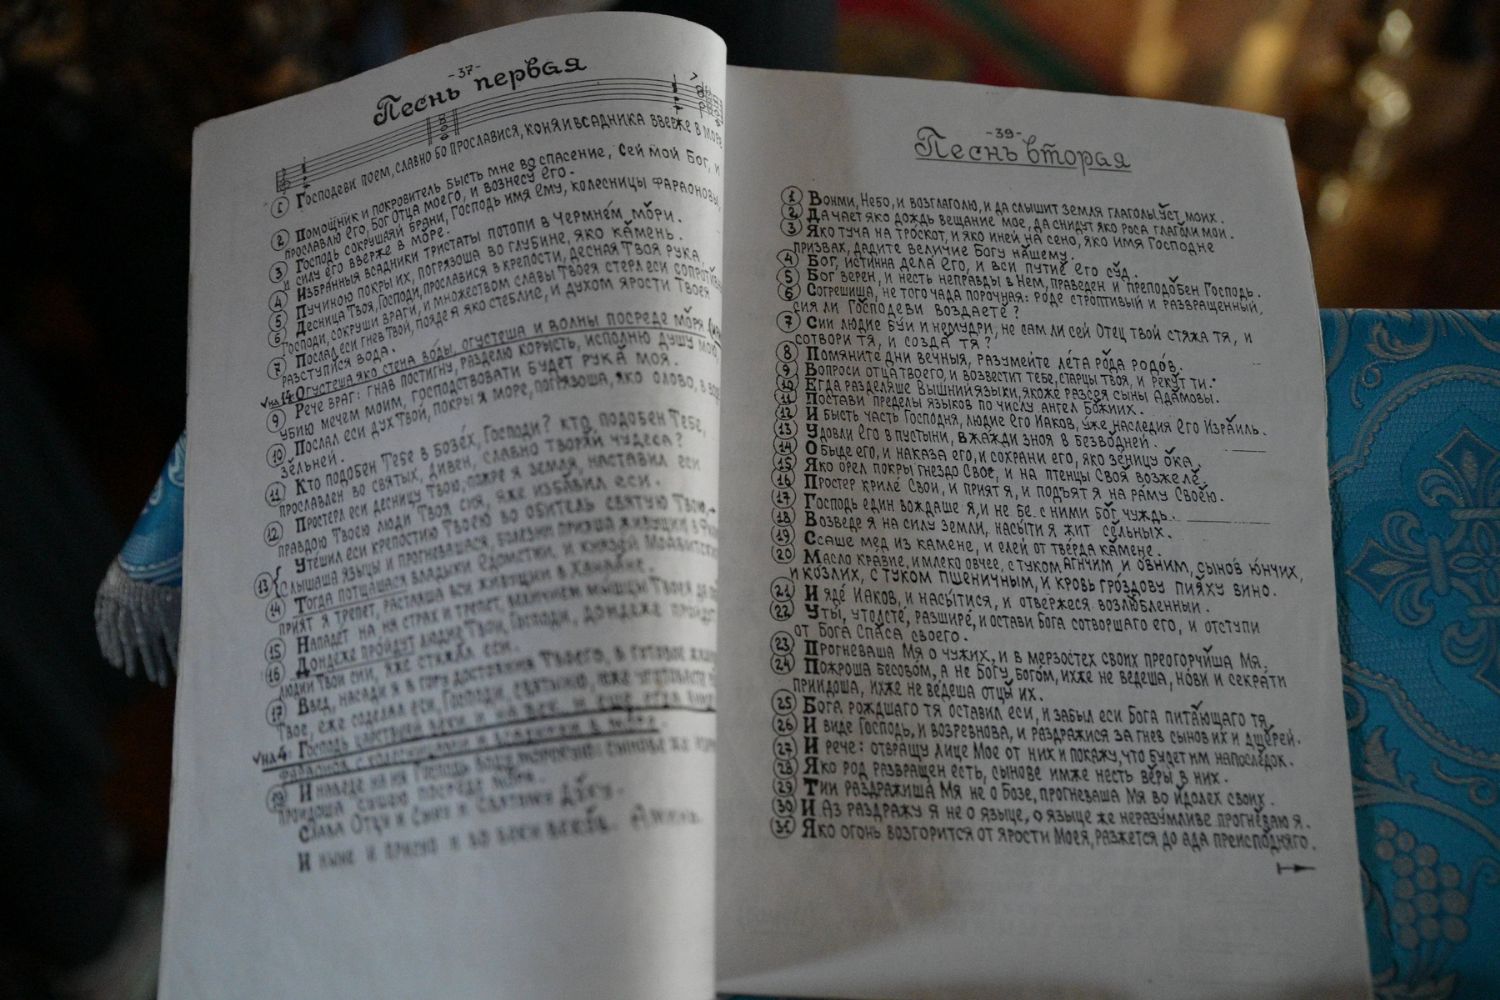 -37-
Песнь первая
1 Господеви поем, славно бо прославися, коня и всадника вверже в море
2 Помощник и покровитель бысть мне во спасение, Сей мой Бог, и
прославлю Его, Бог Отца моего, и вознесу Его.
3 Господь сокрушаяй брани, Господь имя Ему, колесницы фараоновы,
и силу его вверже в море.
4 Избранныя всадники тристаты потопи в Чермнем мори.
5 Пучиною покры их, погрязоша во глубине, яко камень.
6 Десница Твоя, Господи, прославися в крепости, десная Твоя рука,
Господи, сокруши враги, и множеством славы Твоея стерл еси
7 Послал еси гнев Твой, пояде я яко стеблие, и духом ярости Твоея
разступися вода.
на 14: Огустеша яко стена воды, огустеша и волны посреде моря
9 Рече враг: гнав постигну, разделю корысть, исполню душу мою,
убию мечем моим, господствовати будет рука моя.
10 Послал еси дух Твой, покры я море, погрязоша, яко олово, в воде
зельней.
11 Кто подобен Тебе в бозех, Господи? кто подобен Тебе,
прославлен во святых, дивен, славно творяй чудеса?
12 Простерл еси десницу Твою, пожре я земля, наставил еси
правдою Твоею люди Твоя сия, яже избавил еси.
13 Утешил еси крепостию Твоею во обитель святую Твою,
Слышаша языцы и прогневашася, болезни прияша живущии в
14 Тогда потщашася владыки Едомстии, и князей Моавитских
прият я трепет, растаяша вси живущии в Ханаане.
15 Нападет на ня страх и трепет, величием мышцы Твоея да
16 Дондеже пройдут людие Твои, Господи, дондеже пройдут
людии Твои сии, яже стяжал еси.
17 Введ, насади я в гору достояния Твоего, в готовое
Твое, еже соделал еси, Господи, святыню, юже уготовасте
на 4: Господь царствуяй веки и на век и еще, егда
фараонов с колесницами и всадники в море.
19 И наведе на ня Господь воду морскую: сынове же
приидоша сушею посреде моря.
Слава Отцу и Сыну и Святому Духу.
И ныне и присно и во веки веков. Аминь.
-39-
Песнь вторая
1 Вонми, Небо, и возглаголю, и да слышит земля глаголы уст моих.
2 Да чает яко дождь вещание мое, да снидут яко роса глаголи мои.
3 Яко туча на троскот, и яко иней на сено, яко имя Господне
призвах, дадите величие Богу нашему.
4 Бог, истинна дела Его, и вси путие Его суд.
5 Бог верен, и несть неправды в Нем, праведен и преподобен Господь.
6 Согрешиша, не того чада порочная: роде строптивый и развращенный,
сия ли Господеви воздаете?
7 Сии людие буи и немудри, не сам ли сей Отец твой стяжа тя, и
сотвори тя, и созда тя?
8 Помяните дни вечныя, разумейте лета рода родов.
9 Вопроси отца твоего, и возвестит тебе, старцы твоя, и рекут ти.
10 Егда разделяше Вышний языки, якоже разсея сыны Адамовы.
11 Постави пределы языков по числу ангел Божиих.
12 И бысть часть Господня, людие Его Иаков, уже наследия Его Израиль.
13 Удовли Его в пустыни, в жажди зноя в безводней.
14 Обыде его, и наказа его, и сохрани его, яко зеницу ока.
15 Яко орел покры гнездо Свое, и на птенцы Своя возжеле.
16 Простер криле Свои, и прият я, и подъят я на раму Своею.
17 Господь един вождаше я, и не бе с ними бог чуждь.
18 Возведе я на силу земли, насыти я жит сельных.
19 Ссаше мед из камене, и елей от тверда камене.
20 Масло кравие, и млеко овчее, с туком агнчим, и овним, сынов юнчих,
и козлих, с туком пшеничным, и кровь гроздову пияху вино.
21 И яде Иаков, и насытися, и отвержеся возлюбленный.
22 Уты, утолсте, разшире, и остави Бога сотворшаго его, и отступи
от Бога Спаса своего.
23 Прогневаша Мя о чужих, и в мерзостех своих преогорчиша Мя.
24 Пожроша бесовом, а не Богу, богом, ихже не ведеша, нови и секрати
приидоша, ихже не ведеша отцы их.
25 Бога рождшаго тя оставил еси, и забыл еси Бога питающаго тя.
26 И виде Господь, и возревнова, и раздражися за гнев сынов их и дщерей.
27 И рече: отвращу лице Мое от них и покажу, что будет им напоследок.
28 Яко род развращен есть, сынове имже несть веры в них.
29 Тии раздражиша Мя не о Бозе, прогневаша Мя во идолех своих.
30 И Аз раздражу я не о языце, о языце же неразумливе прогневаю я.
31 Яко огонь возгорится от ярости Моея, разжется до ада преисподняго.